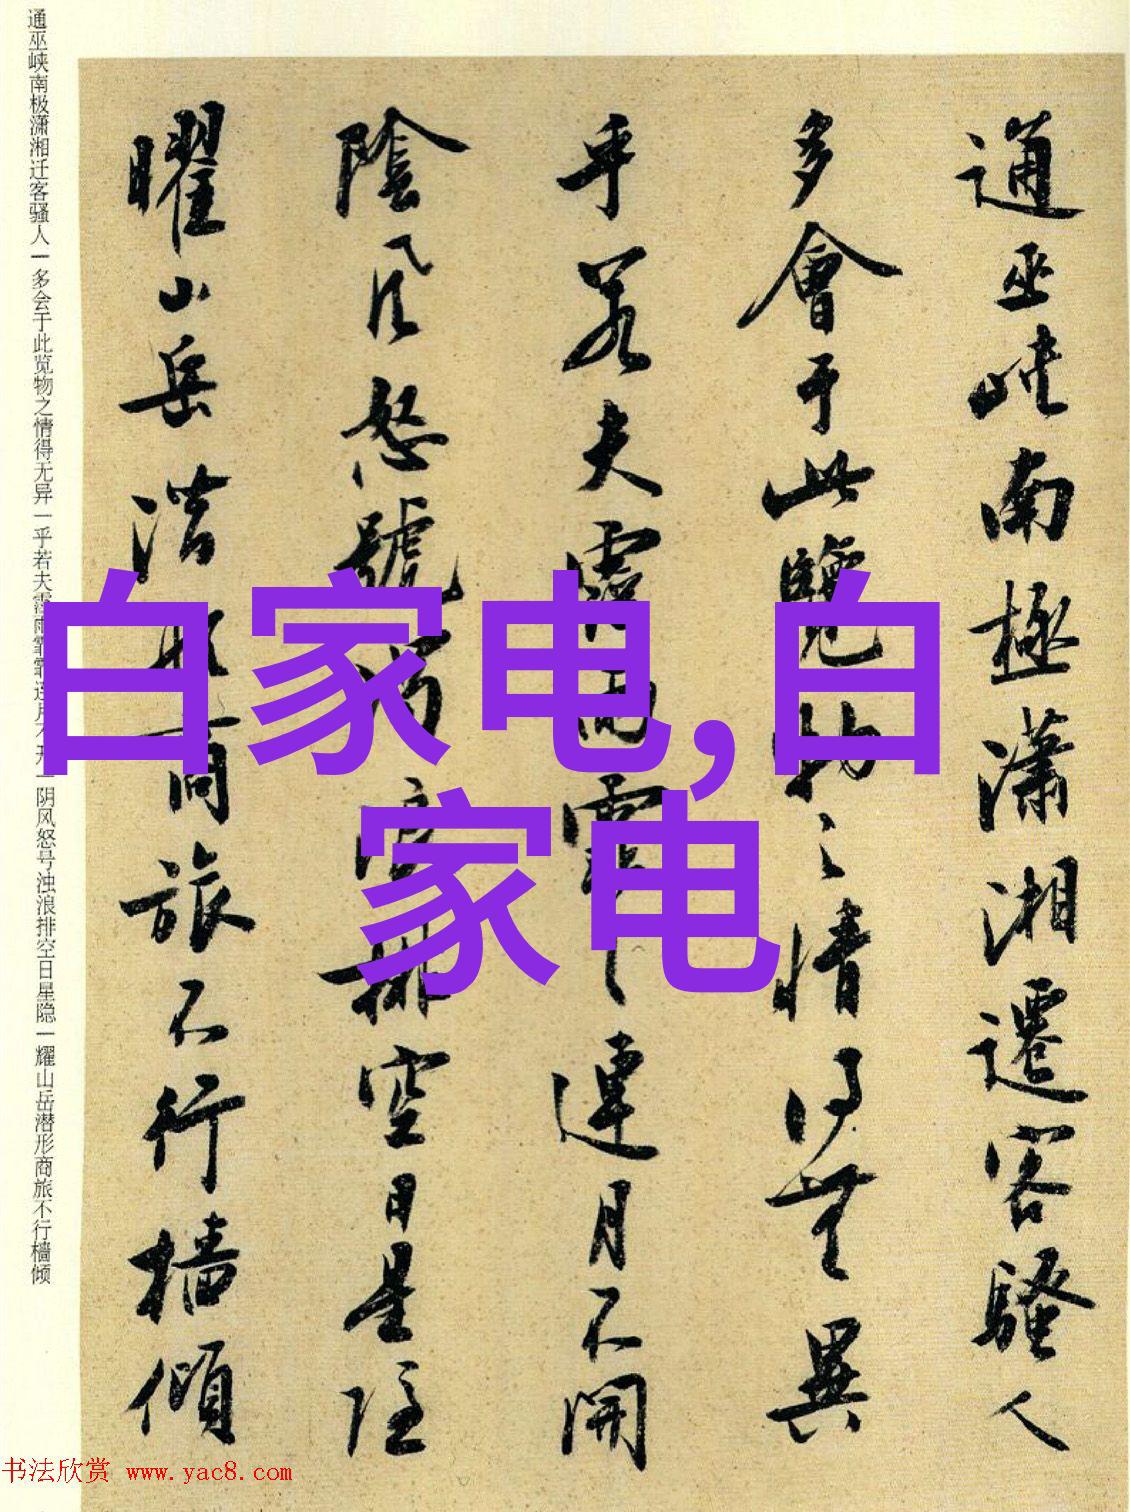 通巫峡南极潇湘迁客骚人一多会于此览物之情得无异一乎若夫霪雨霏霏连月不开一阴风怒号浊浪排空日星隐一耀山岳潜形商旅不行樯倾
通巫峽南極瀟湘遷客騷人
多會于此覽物之情得無異
乎若夫霪雨霏〻連月不開
陰風怒號濁浪排空日星隱
曜山岳潛形商旅不行檣傾
白家电,白
家电
书法欣赏 www.yac8.com